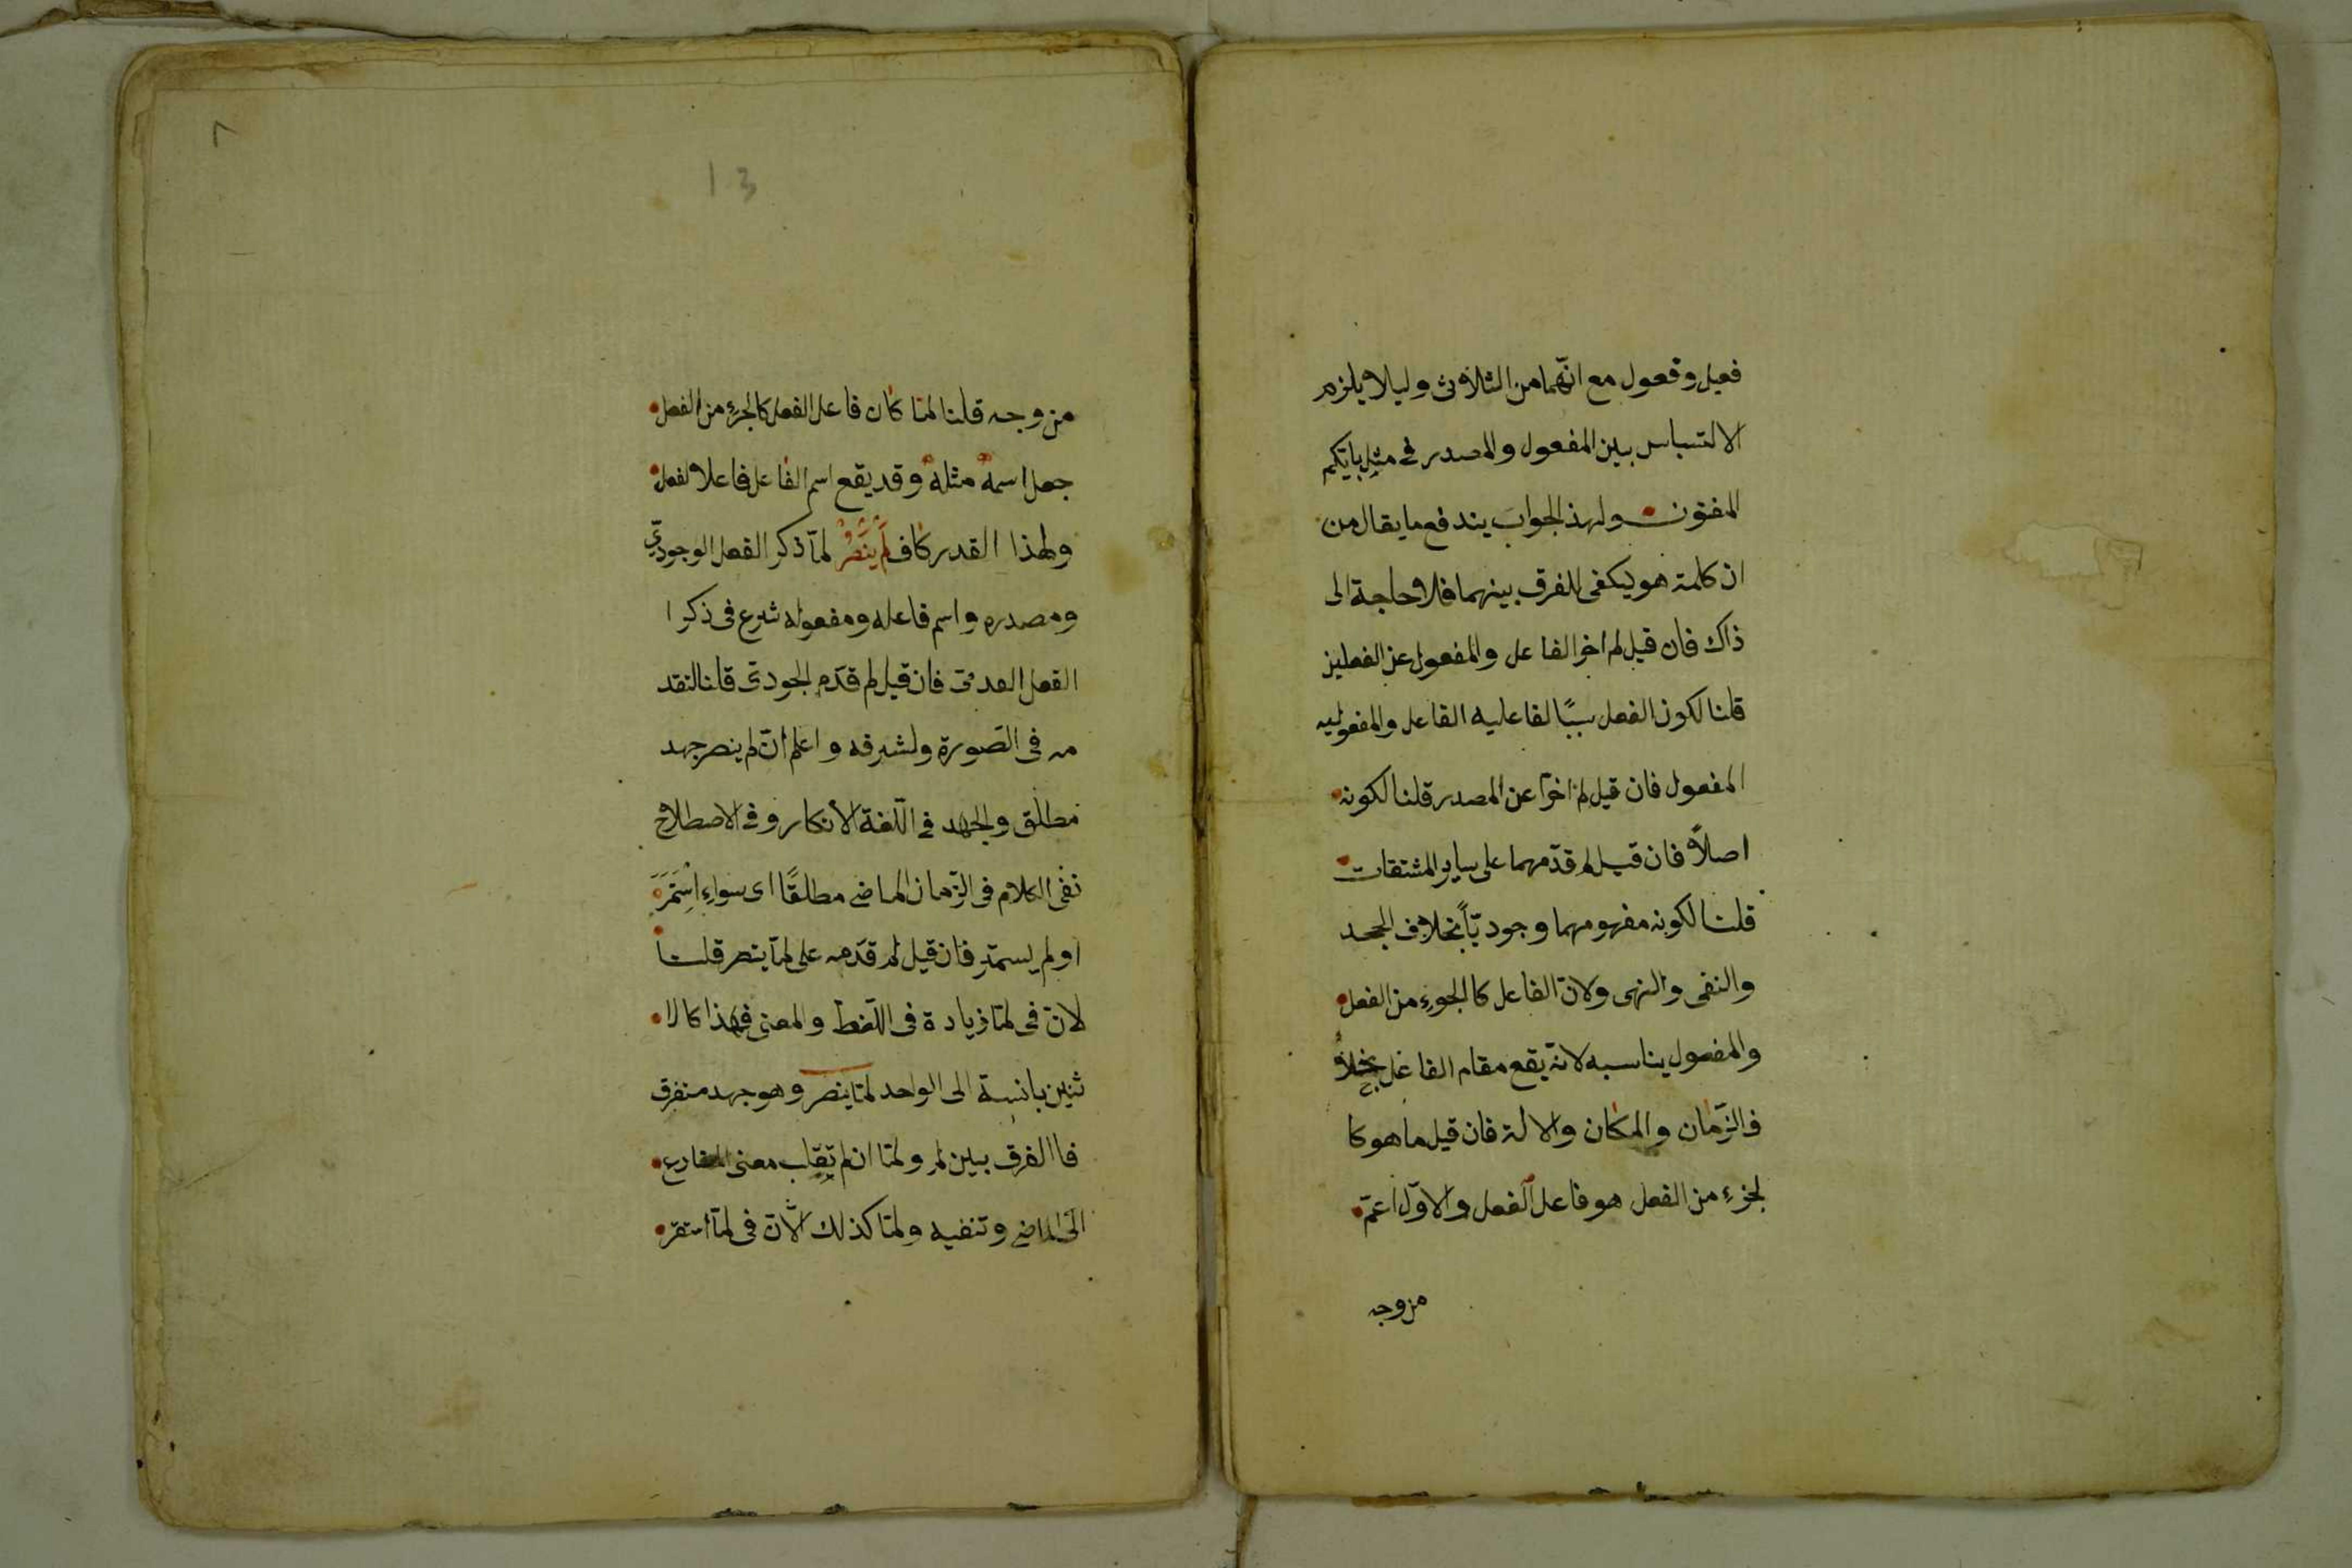 فعيل وفعول مع انّهما من الثلاثى وليلا يلزم
الالتباس بين المفعول والمصدر فى مثل بايّكم
المفتون ولهذ الجواب يندفع ما يقال من
ان كلمة هو يكفى للفرق بينهما فلا حاجة الى
ذاك فان قيل لم اخر الفاعل والمفعول عن الفعلين
قلنا لكون الفعل سببًا لفاعليه الفاعل والمفعوليه
المفعول فان قيل لم اخرّا عن المصدر قلنا لكونه
اصلاً فان قيل لم قدّمهما على ساير المشتقات
قلنا لكونه مفهومهما وجوديّاً بخلاف الجحد
والنفى والنهى ولانّ الفاعل كا الجزءِ من الفعل
والمفعول يناسبه لانّه يقع مقام الفاعل بخلا
ف الزّمان والمكان والالة فان قيل ما هو كا
لجزءِ من الفعل هو فاعل الفعل والاوّل اعمّ
من وجه
٨
13
من وجه قلنا لمّا كان فاعل الفعل كالجزءِ من الفعل
جعل اسمهُ مثلهُ وقد يقع اسم الفاعل فاعلا لفعل
ولهذا القدر كاف لَمْ يَنْصُرْ لمّا ذكر الفعل الوجودىّ
ومصدره واسم فاعله ومفعوله شرع فى ذكر ا
الفعل العدمىّ فان قيل لم قدّم الجودىّ قلنا لتقد
مه فى الصّورة ولشرفه واعلم انّ لم ينصر جهد
مطلق والجهد فى اللّغة الأنكار وفى الاصطلاح
نفى الكلام فى الزّمان الماضى مطلقًا اى سواءِ اِسْتَمَرَّ
او لم يستمرّ فان قيل لم قدّمه على لمّا ينصر قلنا
لانّ فى لمّا زيادة فى اللّفظ والمعنى فهذا كالا
ثنين بانسبة الى الواحد لمّا ينصر وهو جهد مستغرق
فاالفرق بين لم ولمّا ان لم تقلب معنى المضارع
الى الماضى وتنفيه ولمّا كذلك الّا انّ فى لمّا استقر